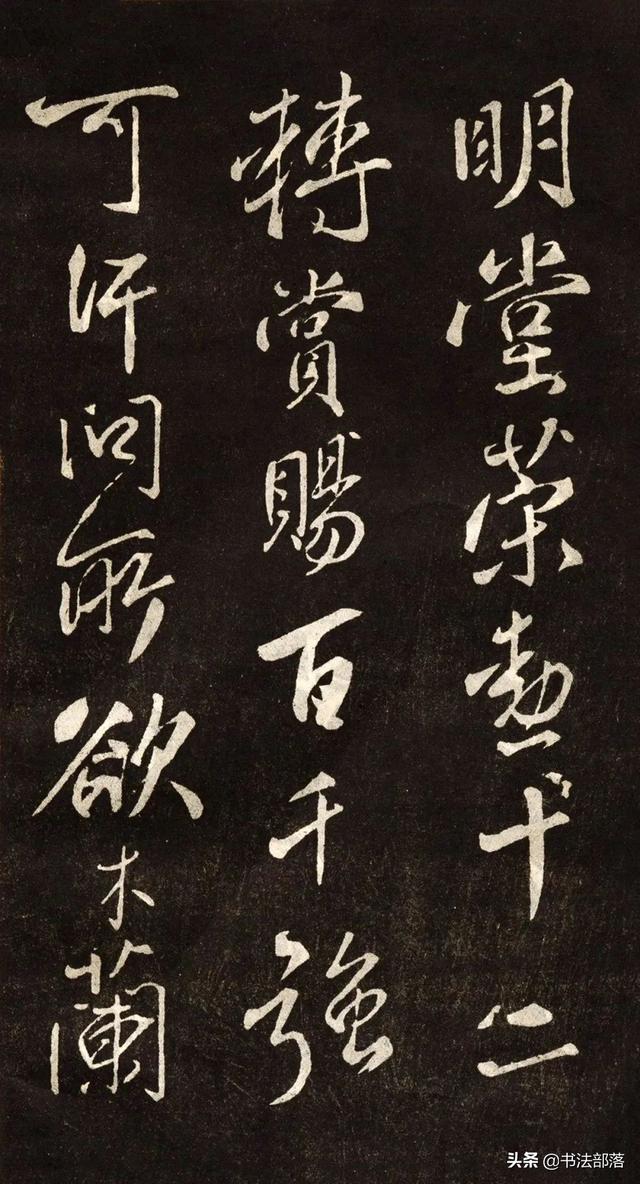 明堂荣勲十二
轉賞賜百千強
可汗問所欲木蘭
头条 @书法部落